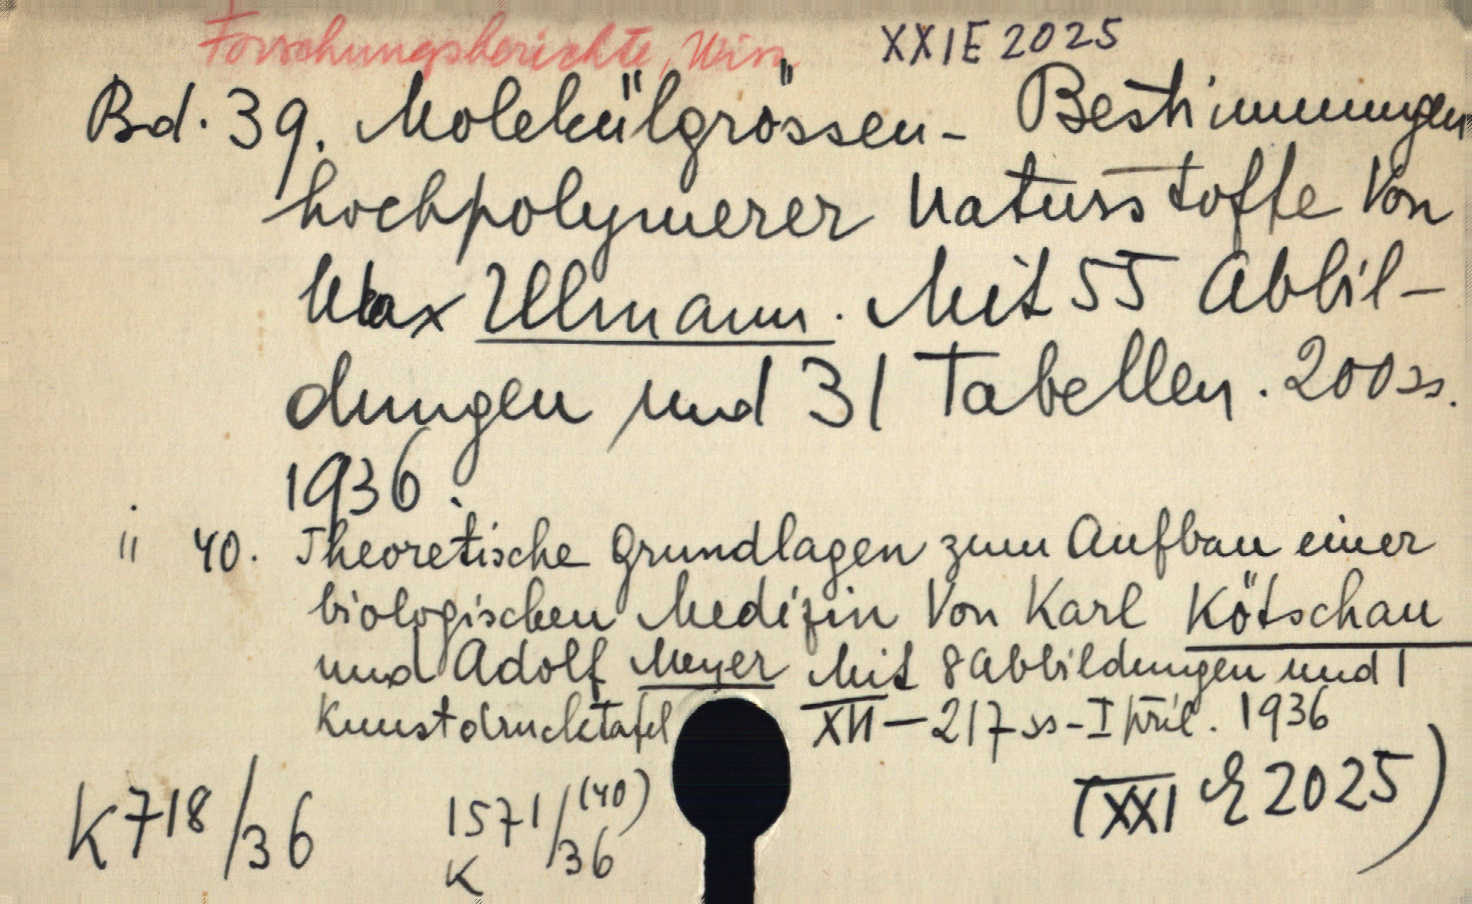 Forschungsberichte, Wiss. XXI E 2025
Bd. 39. Molekülgrössen- Bestimmungen
hochpolymerer Natursstoffe Von
Max Ullmann. Mit 55 Abbil-
dungen und 31 Tabellen. 200 ss.
1936.
" 40. Theoretische Grundlagen zum Aufbau einer
biologischen Medizin Von Karl Kötschau
und Adolf Meyer Mit 8 Abbildungen und 1
Kunstdrucktafel XII—217 ss-I pril. 1936
(XXI E 2025)
K 718/36 1571/36 (40)
K